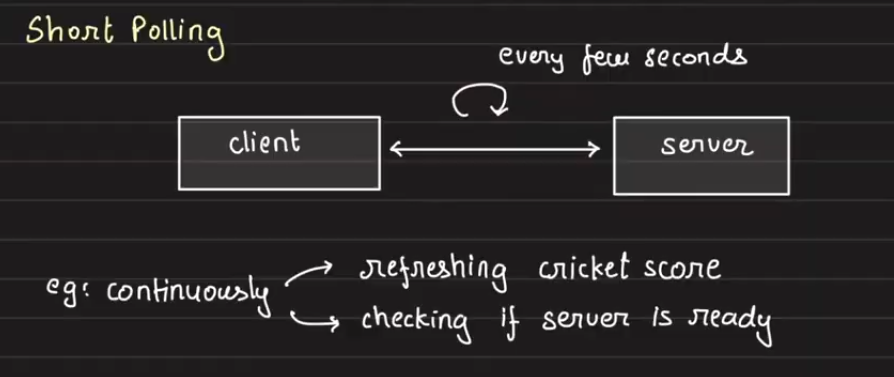 Short Polling
every few seconds
client
server
eg: continuously
refreshing cricket score
checking if server is ready